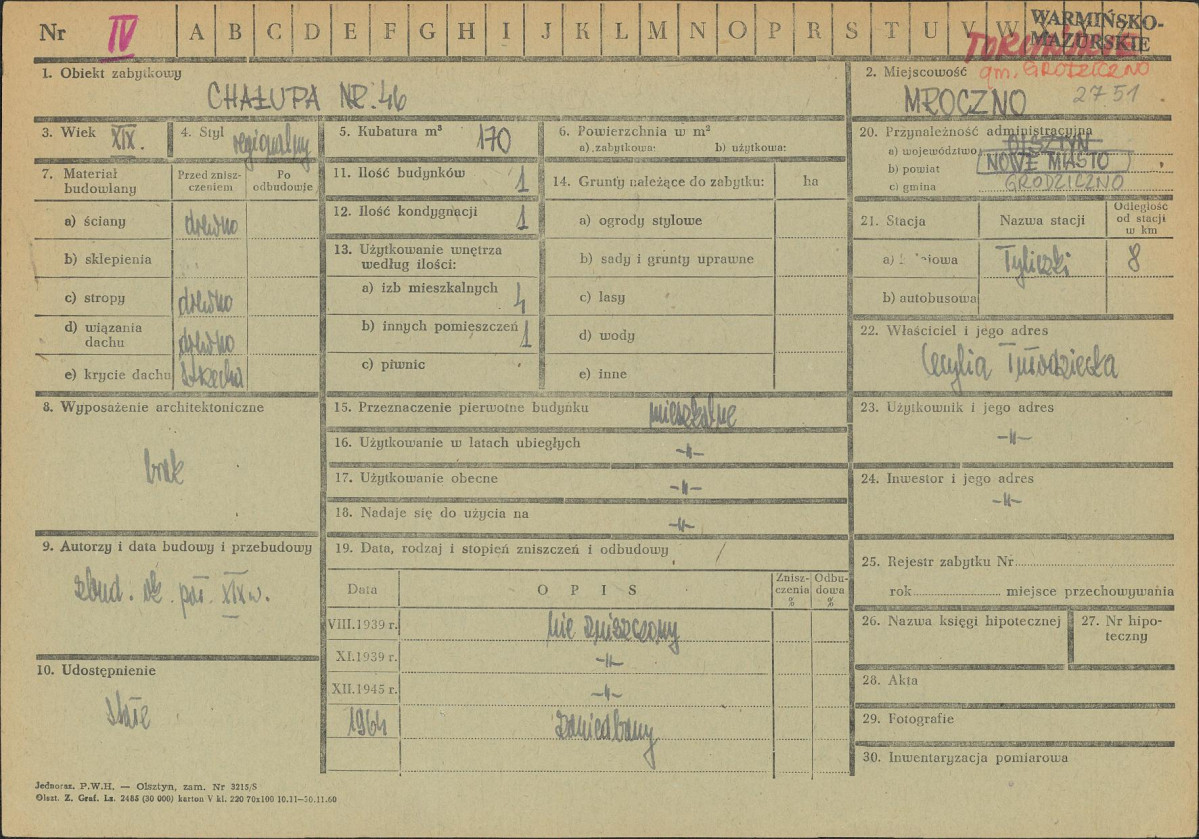 Nr IV A B C D E F G H I J K L M N O P R S T U V W
WARMIŃSKO-
MAZURSKIE
1. Obiekt zabytkowy
CHAŁUPA NR. 46
2. Miejscowość gm. GRODZICZNO
MROCZNO 2751
3. Wiek XIX.
4. Styl regionalny
5. Kubatura m³ 170
6. Powierzchnia w m²
a) zabytkowa: b) użytkowa:
20. Przynależność administracyjna
a) województwo OLSZTYN
b) powiat NOWE MIASTO
c) gmina GRODZICZNO
7. Materiał budowlany
Przed zniszczeniem
Po odbudowie
a) ściany drewno
b) sklepienia
c) stropy drewno
d) wiązania dachu drewno
e) krycie dachu strzecha
11. Ilość budynków 1
12. Ilość kondygnacji 1
13. Użytkowanie wnętrza
według ilości:
a) izb mieszkalnych 4
b) innych pomieszczeń 1
c) piwnic
14. Grunty należące do zabytku: ha
a) ogrody stylowe
b) sady i grunty uprawne
c) lasy
d) wody
e) inne
21. Stacja Nazwa stacji Odległość od stacji w km
a) Tyliczki 8
b) autobusowa
22. Właściciel i jego adres
Cecylia
8. Wyposażenie architektoniczne
brak
15. Przeznaczenie pierwotne budynku mieszkalne
16. Użytkowanie w latach ubiegłych -"-
17. Użytkowanie obecne -"-
18. Nadaje się do użycia na -"-
23. Użytkownik i jego adres
-"-
24. Inwestor i jego adres
-"-
9. Autorzy i data budowy i przebudowy
zbud. poł. XIX w.
10. Udostępnienie
stałe
19. Data, rodzaj i stopień zniszczeń i odbudowy /
Data OPIS Zniszczenia % Odbudowa %
VIII.1939 r. nie zniszczony
XI.1939 r. -"-
XII.1945 r. -"-
1964 zaniedbany
25. Rejestr zabytku Nr
rok miejsce przechowywania
26. Nazwa księgi hipotecznej
27. Nr hipoteczny
28. Akta
29. Fotografie
30. Inwentaryzacja pomiarowa
Jednoraz. P.W.H. — Olsztyn, zam. Nr 3215/S
Olszt. Z. Graf. Lz. 2485 (30 000) karton V kl. 220 70x100 10.11—30.11.60